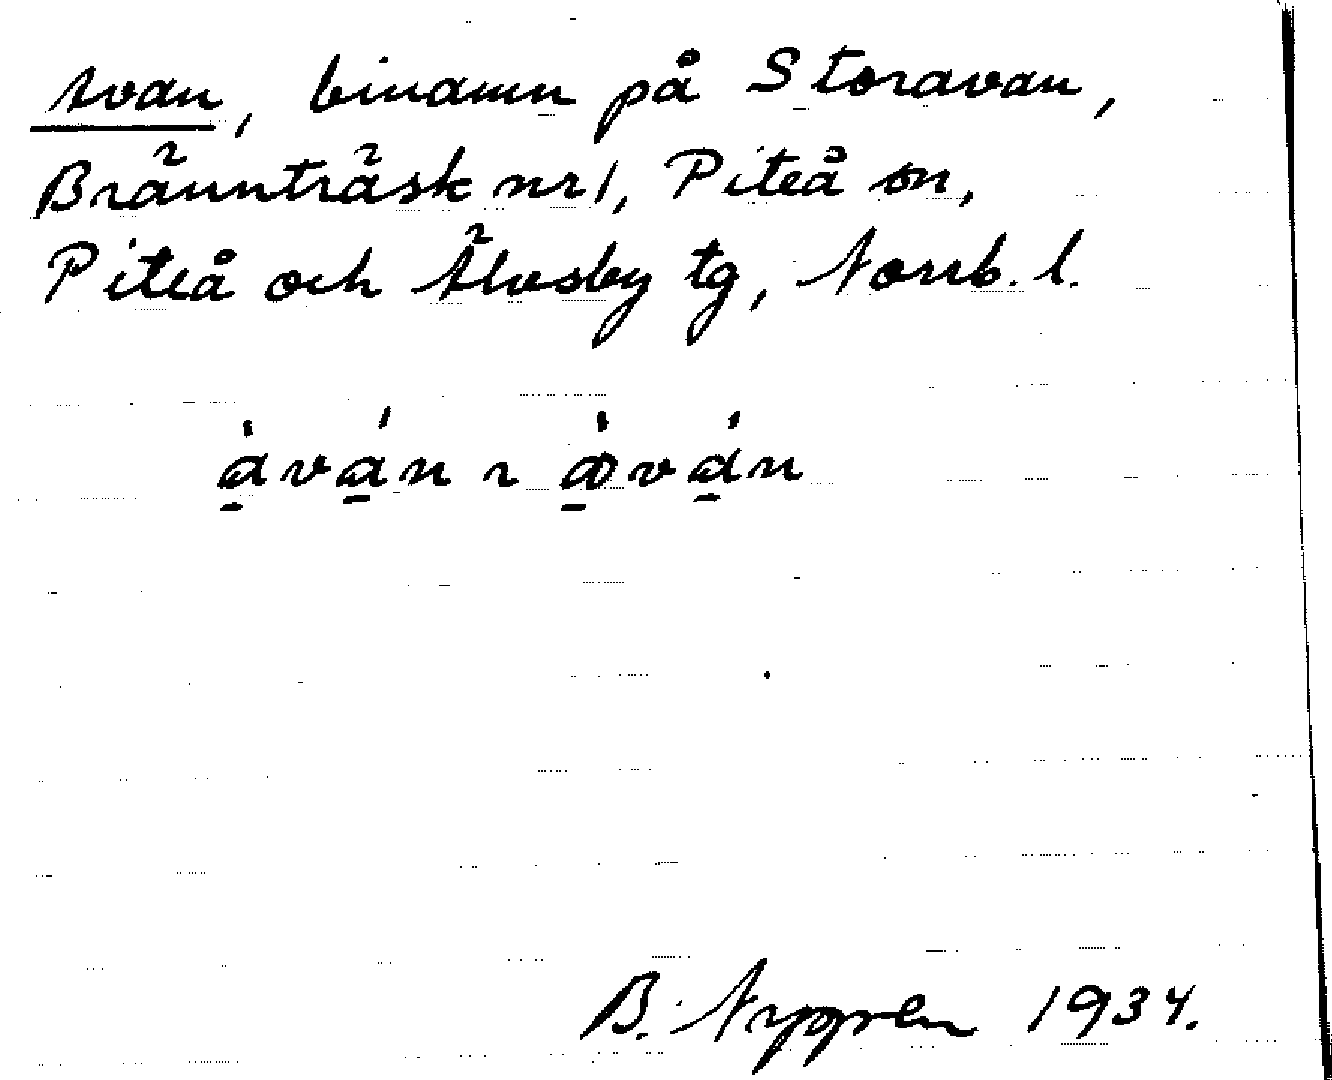 Avan, binamn på Storavan,
Brännträsk nr 1, Piteå sn,
Piteå och Älvsby tg, Norrb. l.
a̠̍va̠̍n ~ a̠̍va̠̍n
B. Nygren 1934.